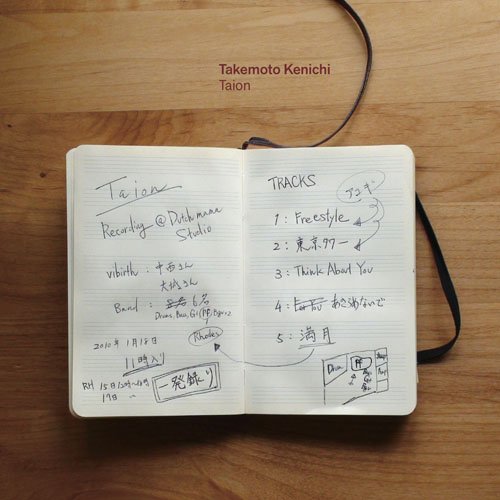 Takemoto Kenichi
Taion
Taion
Recording @ Dutch mama
Studio
vibirth : 中西さん
大城さん
Band : 6名
Drums, Bass, Gt, Pf,
Rhodes
2010年1月18日
11時入り
RH 15日
17日
一発録り
TRACKS
アコギ
1 : Freestyle
2 : 東京タワー
3 : Think About You
4 : あきらめないで
5 : 満月
Drum
Pf